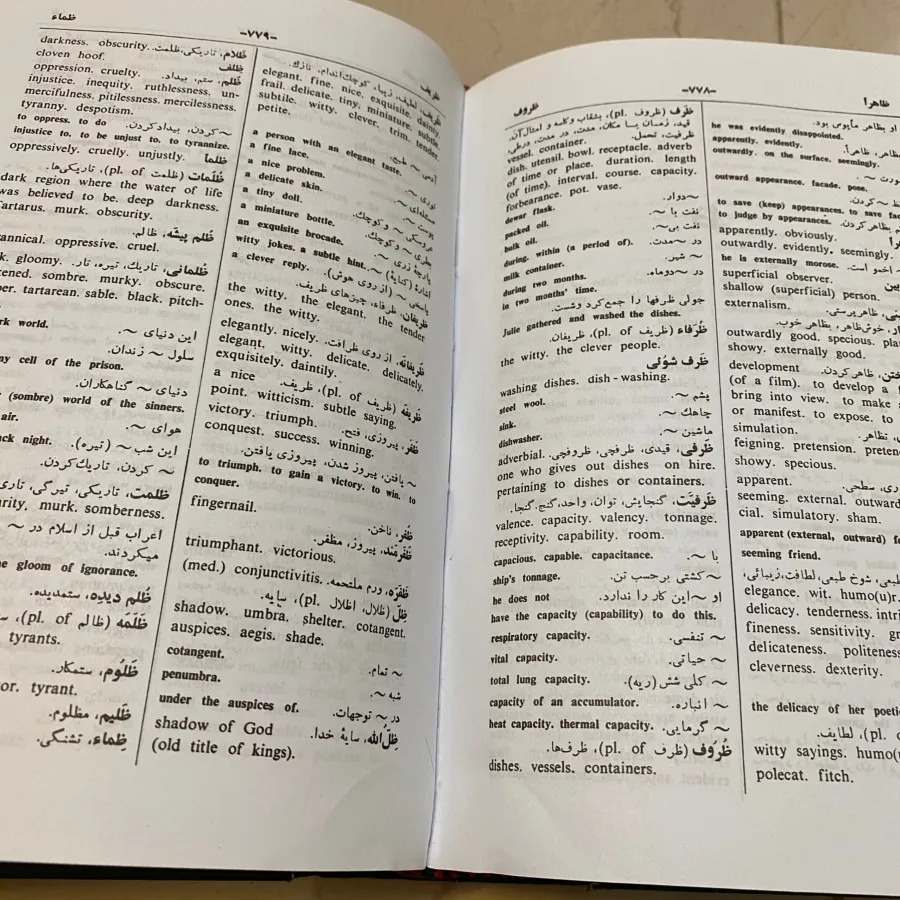 ظاهرا
-۷۷۸-
ظروف
او بظاهر مأیوس بود.
he was evidently disappointed.
بظاهر، ظاهراً.
apparently. evidently.
outwardly. on the surface. seemingly.
outward appearance. facade. pose.
to save (keep) appearances. to save
to judge by appearances.
apparently. obviously.
outwardly. evidently. seemingly.
he is externally morose.
superficial observer.
shallow (superficial) person.
externalism.
خوش‌ظاهر، بظاهر خوب.
outwardly good. specious.
showy. externally good.
ظاهر کردن.
development
(of a film). to develop a
bring into view. to make
or manifest. to expose. to
simulation.
feigning. pretension.
showy. specious.
apparent.
seeming. external. outward
cial. simulatory. sham.
apparent (external, outward)
seeming friend.
شوخ طبعی، لطافت، زیبائی،
elegance. wit. humo(u)r.
delicacy. tenderness.
fineness. sensitivity.
delicateness. politeness.
cleverness. dexterity.
the delicacy of her
لطایف.
witty sayings.
polecat. fitch.
ظَرف (ظروف .pl)، بشقاب و کاسه و امثال آن
قید، زمان یا مکان، مدت، در مدت، درطی
ظرفیت، تحمل.
vessel. container.
dish. utensil. bowl. receptacle. adverb
of time or place. duration. length
(of time). interval. course. capacity.
forbearance. pot. vase.
~دوار.
dewar flask.
نفت با ~.
packed oil.
نفت بی~.
bulk oil.
در ~مدت.
during. within (a period of).
~ شیر.
milk container.
در ~دوماه.
during two months.
in two months' time.
جولی ظرفها را جمع کرد وشست.
Julie gathered and washed the dishes.
ظُرَفاء (ظریف pl. of)، ظریفان.
the witty. the clever people.
ظَرف شوئی
washing dishes. dish - washing.
پشم ~.
steel wool.
چاهك ~.
sink.
ماشین ~.
dishwasher.
ظَرفی، قیدی، ظرفچی، ظروفچی.
adverbial.
one who gives out dishes on hire.
pertaining to dishes or containers.
ظَرفیَّت، گنجایش، توان، واحد، گنج، گنجا.
valence. capacity. valency. tonnage.
receptivity. capability. room.
با ~.
capacious. capable. capacitance.
~کشتی برحسب تن.
ship's tonnage.
او ~این کار را ندارد.
he does not
have the capacity (capability) to do this.
~ تنفسی.
respiratory capacity.
~ حیاتی.
vital capacity.
~ کلی شش (ریه).
total lung capacity.
~ انباره.
capacity of an accumulator.
~ گرمایی.
heat capacity. thermal capacity.
ظُرُوف (ظرف pl. of)، ظرف‌ها.
dishes. vessels. containers.
-۷۷۹-
ظماء
ظریف
ظریف، لطیف، زیبا، کوچك اندام، نازك.
elegant. fine. nice. exquisite. dainty.
frail. delicate. tiny. miniature. subtle.
subtile. witty. clever. trim. tender.
petite.
آدمی ~ طبع.
a person with an elegant taste.
a fine lace.
توری ~.
a nice problem.
مسئله‌ای ~.
a delicate skin.
پوست ~.
a tiny doll.
عروسکی ~ و کوچك.
a miniature bottle.
بطری ~ و کوچك.
an exquisite brocade.
پارچهٔ زری ~.
witty jokes. a subtle hint.
اشارهٔ (کنایهٔ) ~.
a clever reply.
پاسخی ~ (از روی هوش).
ظریفان، ظرفاء، چیزهای ظریف.
the witty. the elegant. the tender
ones. the witty.
ظَریفانه، از روی ظرافت.
elegantly. nicely.
elegant. witty. delicate. delicately.
exquisitely. daintily.
ظَریفه (ظریف pl. of)، ظریف.
a nice
point. witticism. subtle saying.
ظَفَر، پیروزی، فتح.
victory. triumph.
conquest. success. winning.
~ یافتن، پیروز شدن، پیروزی یافتن.
to triumph. to gain a victory. to win. to
conquer.
ظفر، ناخن.
fingernail.
ظَفَرمَند، پیروز، مظفر.
triumphant. victorious.
ظَفَرَه، ورم ملتحمه.
(med.) conjunctivitis.
ظِلّ (ظلال، اظلال .pl)، سایه.
shadow. umbra. shelter. cotangent.
auspices. aegis. shade.
~ تمام.
cotangent.
شبه ~.
penumbra.
در ~ توجهات.
under the auspices of.
ظِلُّ‌الله، سایهٔ خدا.
shadow of God
(old title of kings).
ظَلام، تاریکی، ظلمت.
darkness. obscurity.
ظِلف
cloven hoof.
ظُلم، ستم، بیداد.
oppression. cruelty.
injustice. inequity. ruthlessness. un-
mercifulness. pitilessness. mercilessness.
tyranny. despotism.
~ کردن، بیداد کردن.
to oppress. to do
injustice to. to be unjust to. to tyrannize.
ظلماً
oppressively. cruelly. unjustly.
ظُلُمات (ظلمت pl. of)، تاریکی‌ها.
dark region where the water of life
was believed to be. deep darkness.
Tartarus. murk. obscurity.
ظُلم پیشَه، ظالم.
annical. oppressive. cruel.
ظُلمانی، تاریك، تیره، تار.
gloomy. dark. murky. obscure.
ened. sombre.
tartarean. sable. black. pitch-
این دنیای ~.
rk world.
سلول ~ زندان.
my cell of the prison.
دنیای ~ گناهکاران.
(sombre) world of the sinners.
هوای ~.
air.
این شب ~ (تیره).
ck night.
~ کردن، تاریك کردن.
ظُلمَت، تاریکی، تیرگی، تاری
urity. murk. somberness.
اعراب قبل از اسلام در ~
میکردند.
e gloom of ignorance.
ظُلم دیده، ستمدیده.
ظَلَمَه (ظالم pl. of)،
tyrants.
ظَلُوم، ستمکار.
or. tyrant.
ظَلیم، مظلوم.
ظِماء، تشنگی.